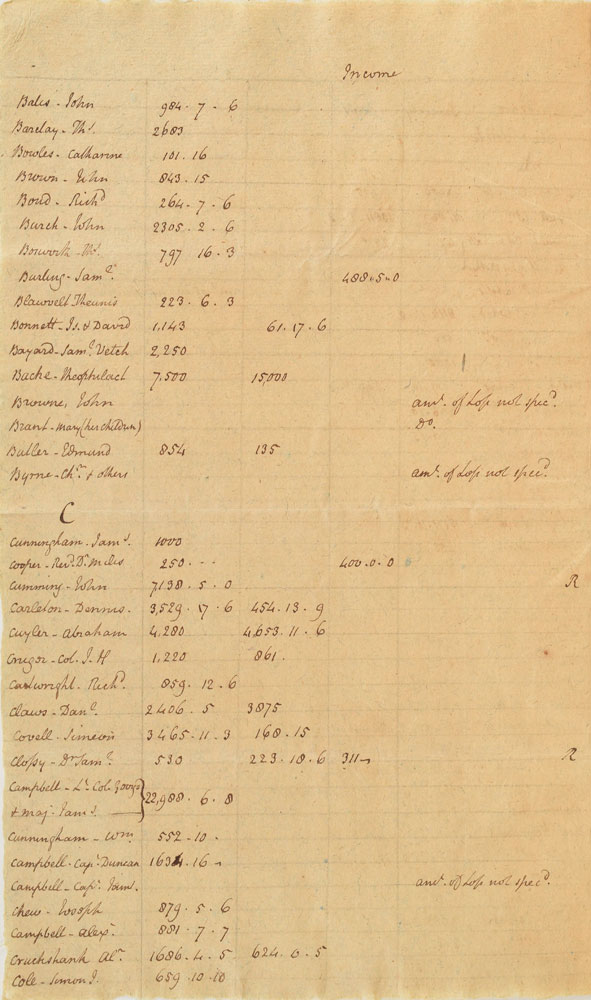 Income
Bates - John 984 . 7 . 6
Barclay - Ths. 2683
Bowles - Catharine 101 . 16
Brown - John 843 . 15
Boud - Richd 264 . 7 . 6
Burch - John 2305 . 2 . 6
Bosworth - Ths. 797 16 . 3
Burling - Saml. 488 . 5 . 0
Blawvelt Theunis 223 . 6 . 3
Bonnett - Is. & David 1,143 61 . 17 . 6
Bayard - Saml. Vetch 2,250
Bache - Theophilact 7,500 15,000
Browne, John amt. of Loss not specd.
Brant - Mary (her children) Do.
Butler - Edmund 854 135
Byrne - Chr. & others amt. of Loss not specd.
C
Cunningham - Jams. 1000
Cooper - Revd. Dr. Miles 250 . - - 400 . 0 . 0
Cumming - John 7,138 . 5 . 0 R
Carleton - Dennis. 3,529 . 17 . 6 454 . 13 . 9
Cuyler - Abraham 4,280 4,653 . 11 . 6
Cruger - Col. J. H 1,220 861 .
Cartwright - Richd. 859 . 12 . 6
Claws - Danl. 2406 . 5 3875
Covell - Simeon 3465 . 11 . 3 168 . 15
Clossy - Dr Saml. 530 223 . 18 . 6 311 - R
Campbell - Lt. Col.
& Maj. Jams. } 22,988 . 6 . 8
Cunningham - Wm. 552 . 10 -
Campbell - Capt. Duncan 1634 . 16 -
Campbell - Capt. Jams. amt. of Loss not specd.
Chew - Joseph 879 . 5 . 6
Campbell - Alexr. 881 . 7 . 7
Cruckshank Alr. 1686 . 4 . 5 624 . 0 . 5
Cole - Simon J. 659 . 10 . 10